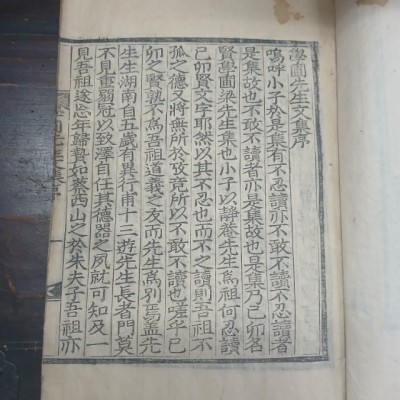 學圃先生文集序
嗚呼小子於是集有不忍讀亦不敢不讀者
是集故也不敢不讀者亦是集故也是集乃己卯名
賢學圃梁先生集也小子以靜菴先生爲祖何忍讀
己卯賢文字耶然以其不忍也而不之讀則吾祖不
孤之德又將無所於攷竟所以不敢不讀也嗟乎己
卯之賢孰不爲吾祖道義之友而先生爲別焉盖先
生生湖南自五歲有異行甫十三遊先生長者門莫
不見重弱冠以致澤自任其德器之夙就可知及一
見吾祖遂忘年歸贄如蔡西山之於朱夫子吾祖亦
學圃先生集序